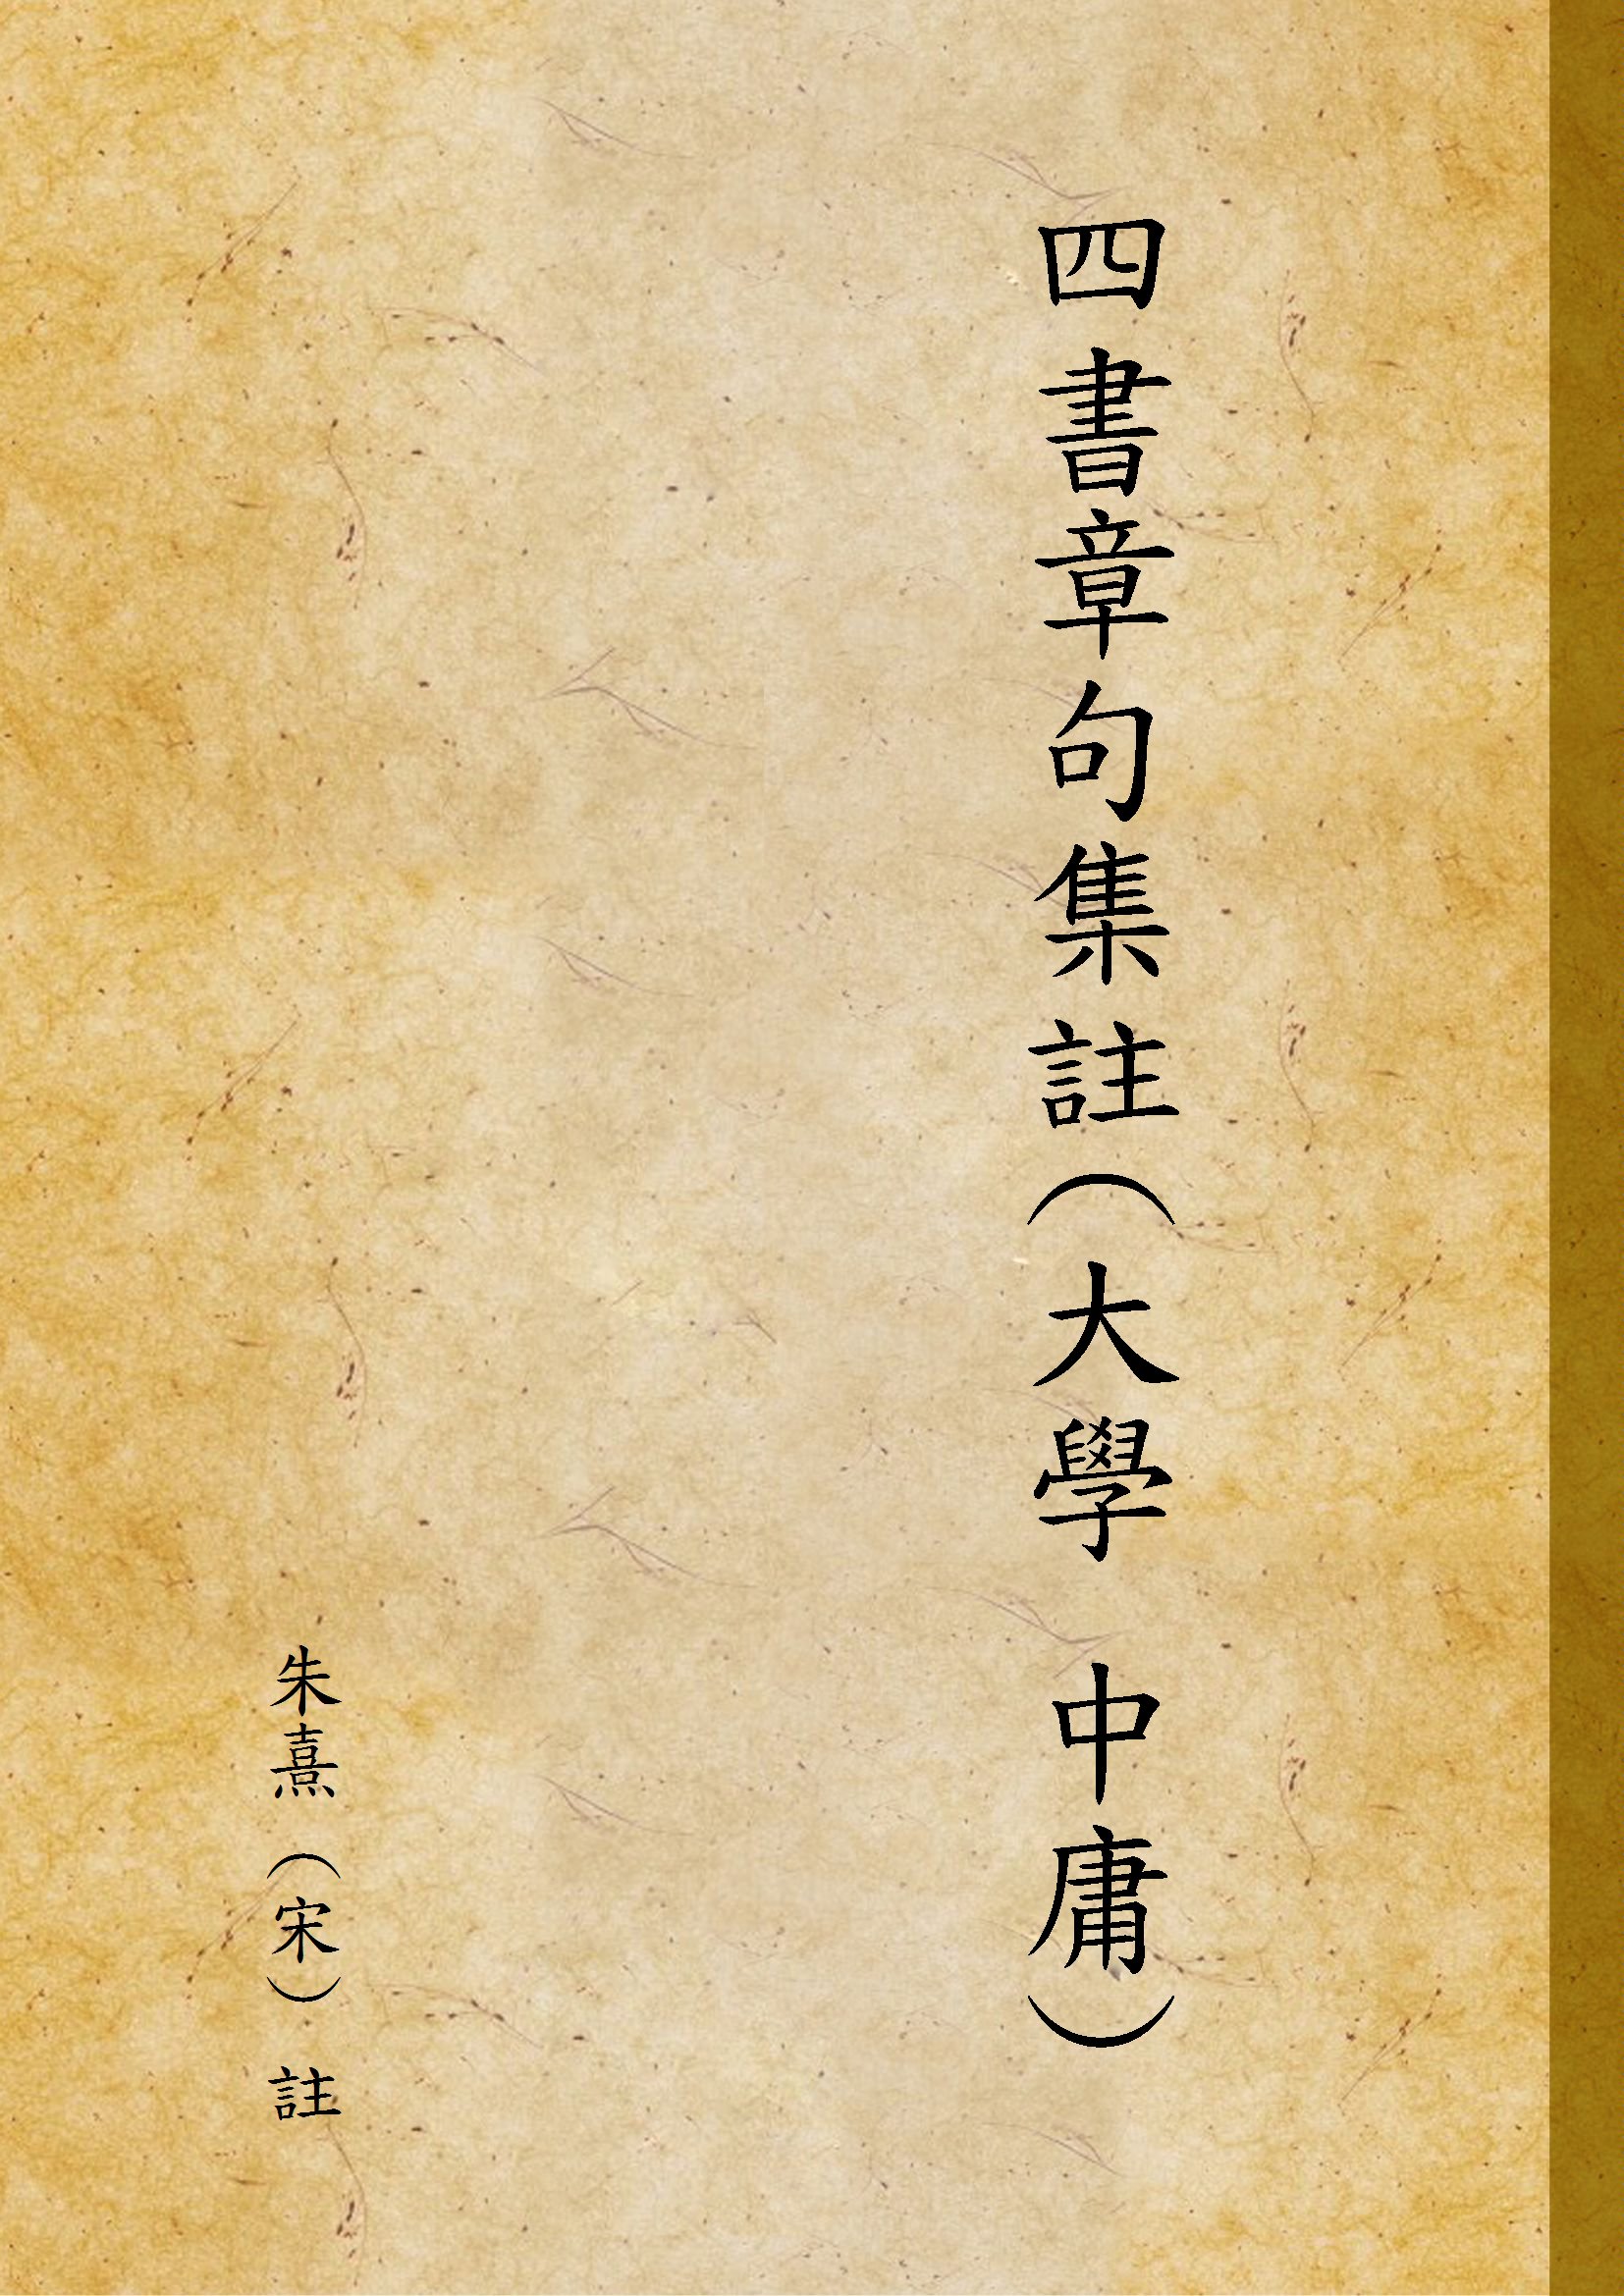 四書章句集註（大學　中庸）
朱熹（宋）註